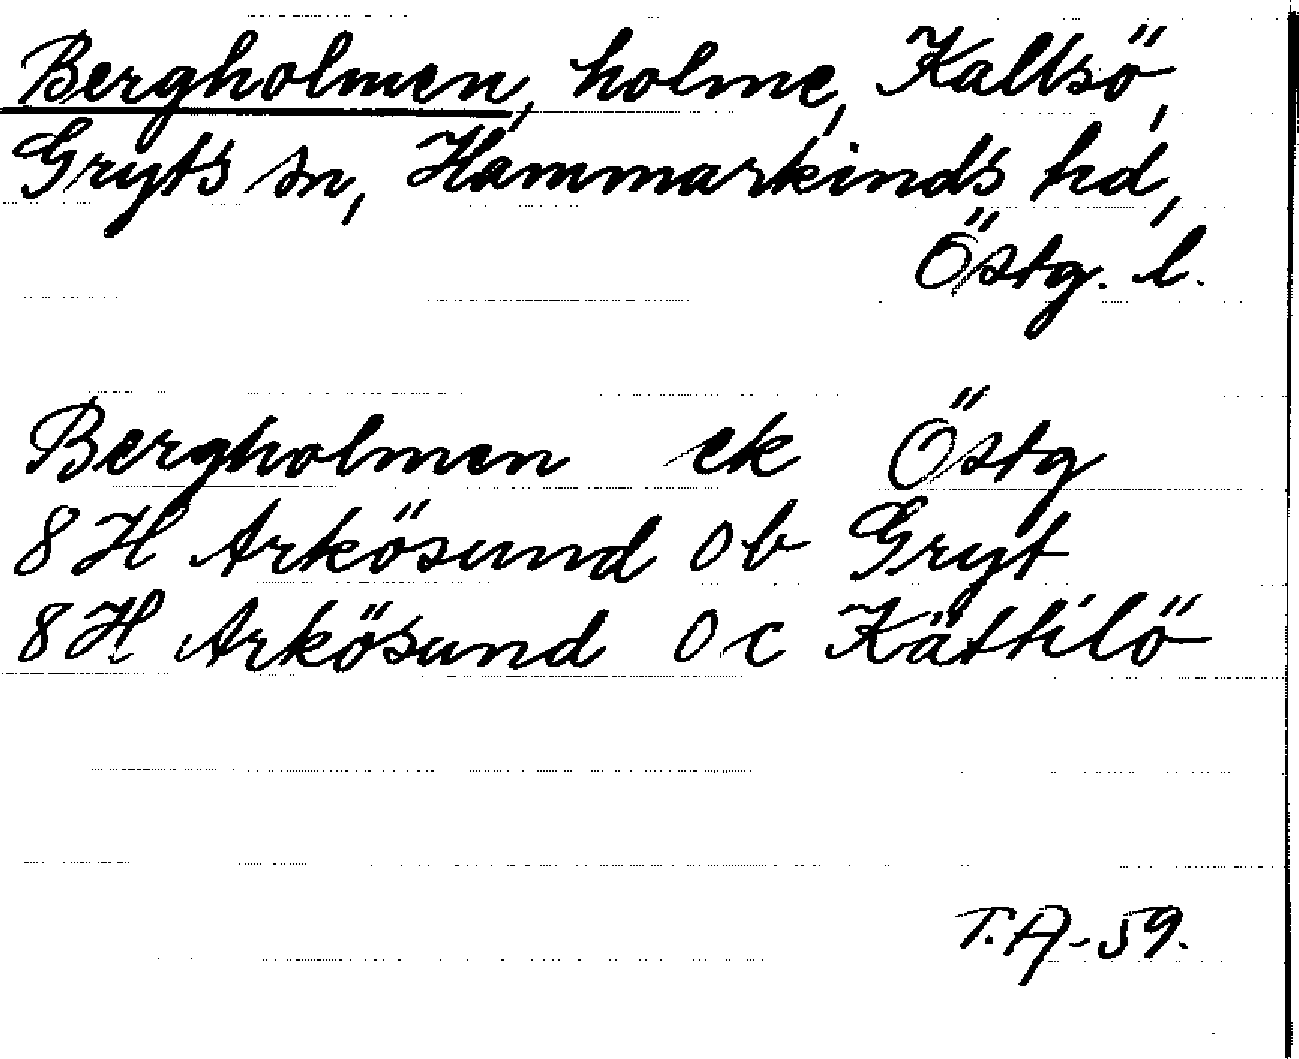 Bergholmen, holme, Kallsö,
Gryts sn, Hammarkinds hd,
Östg. l.
Bergholmen ek Östg
8H Arkösund 0b Gryt
8H Arkösund 0c Kättilö
T.A-59.